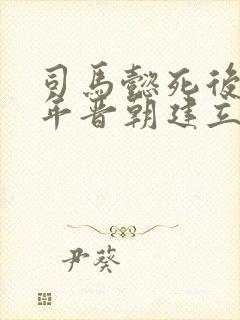 司馬懿死後
年晉朝建立
尹葵